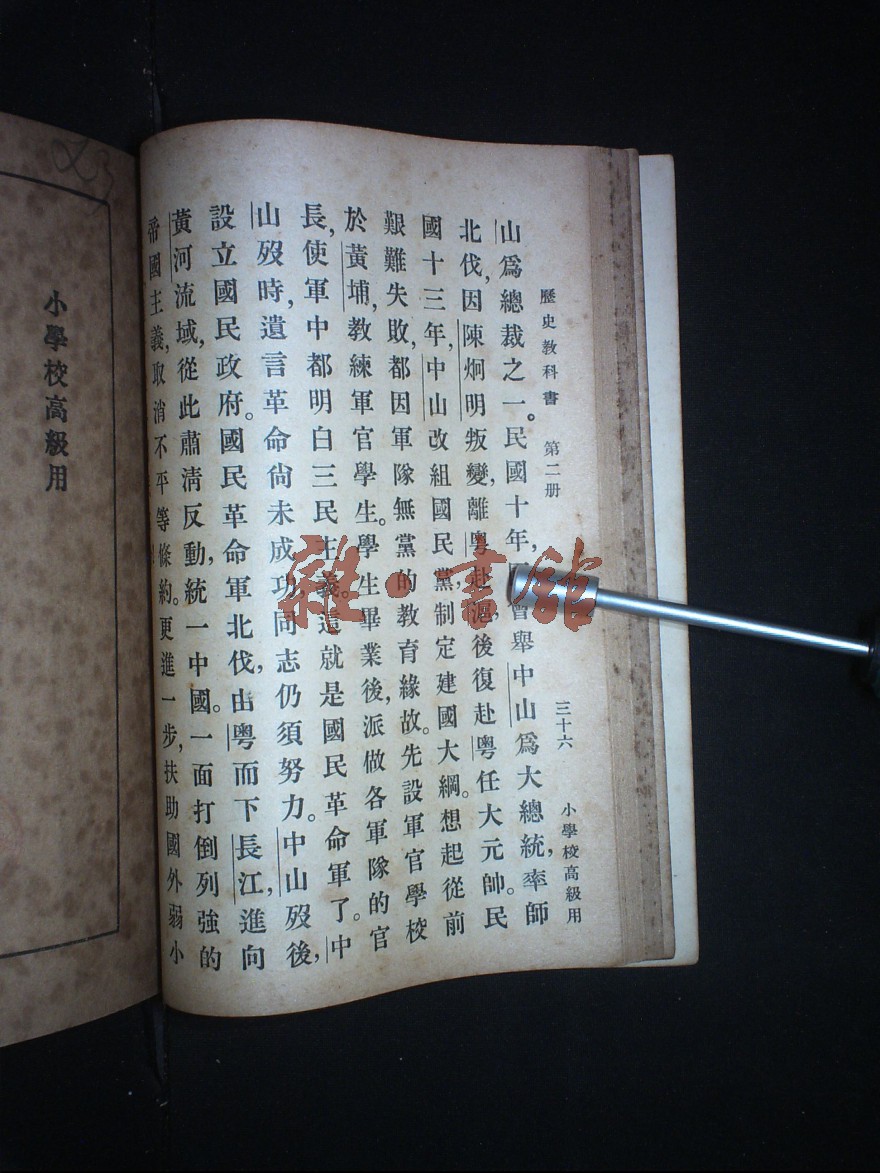 歷史教科書 第二册 三十六 小學校高級用
山爲總裁之一。民國十年,曾舉中山爲大總統,率師
北伐,因陳炯明叛變,離粵赴滬,後復赴粵任大元帥。民
國十三年,中山改組國民黨,制定建國大綱。想起從前
艱難失敗,都因軍隊無黨的教育緣故。先設軍官學校
於黃埔,教練軍官學生。學生畢業後,派做各軍隊的官
長,使軍中都明白三民主義。這就是國民革命軍了。中
山歿時,遺言革命尙未成功,同志仍須努力。中山歿後,
設立國民政府。國民革命軍北伐,由粵而下長江,進向
黃河流域,從此肅淸反動,統一中國。一面打倒列強的
帝國主義,取消不平等條約。更進一步,扶助國外弱小
小學校高級用
23
雜·書館